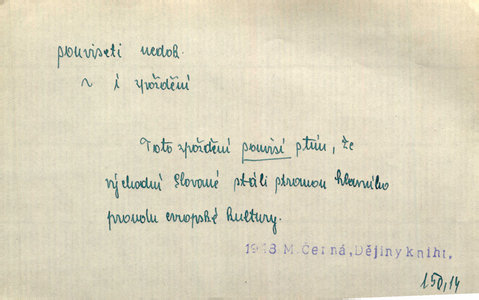 souviseti nedok.
~ i zpoždění
Toto zpoždění souvisí s tím, že
východní Slované stáli stranou hlavního
proudu evropské kultury.
1948 M. Černá, Dějiny kniht.
150,14